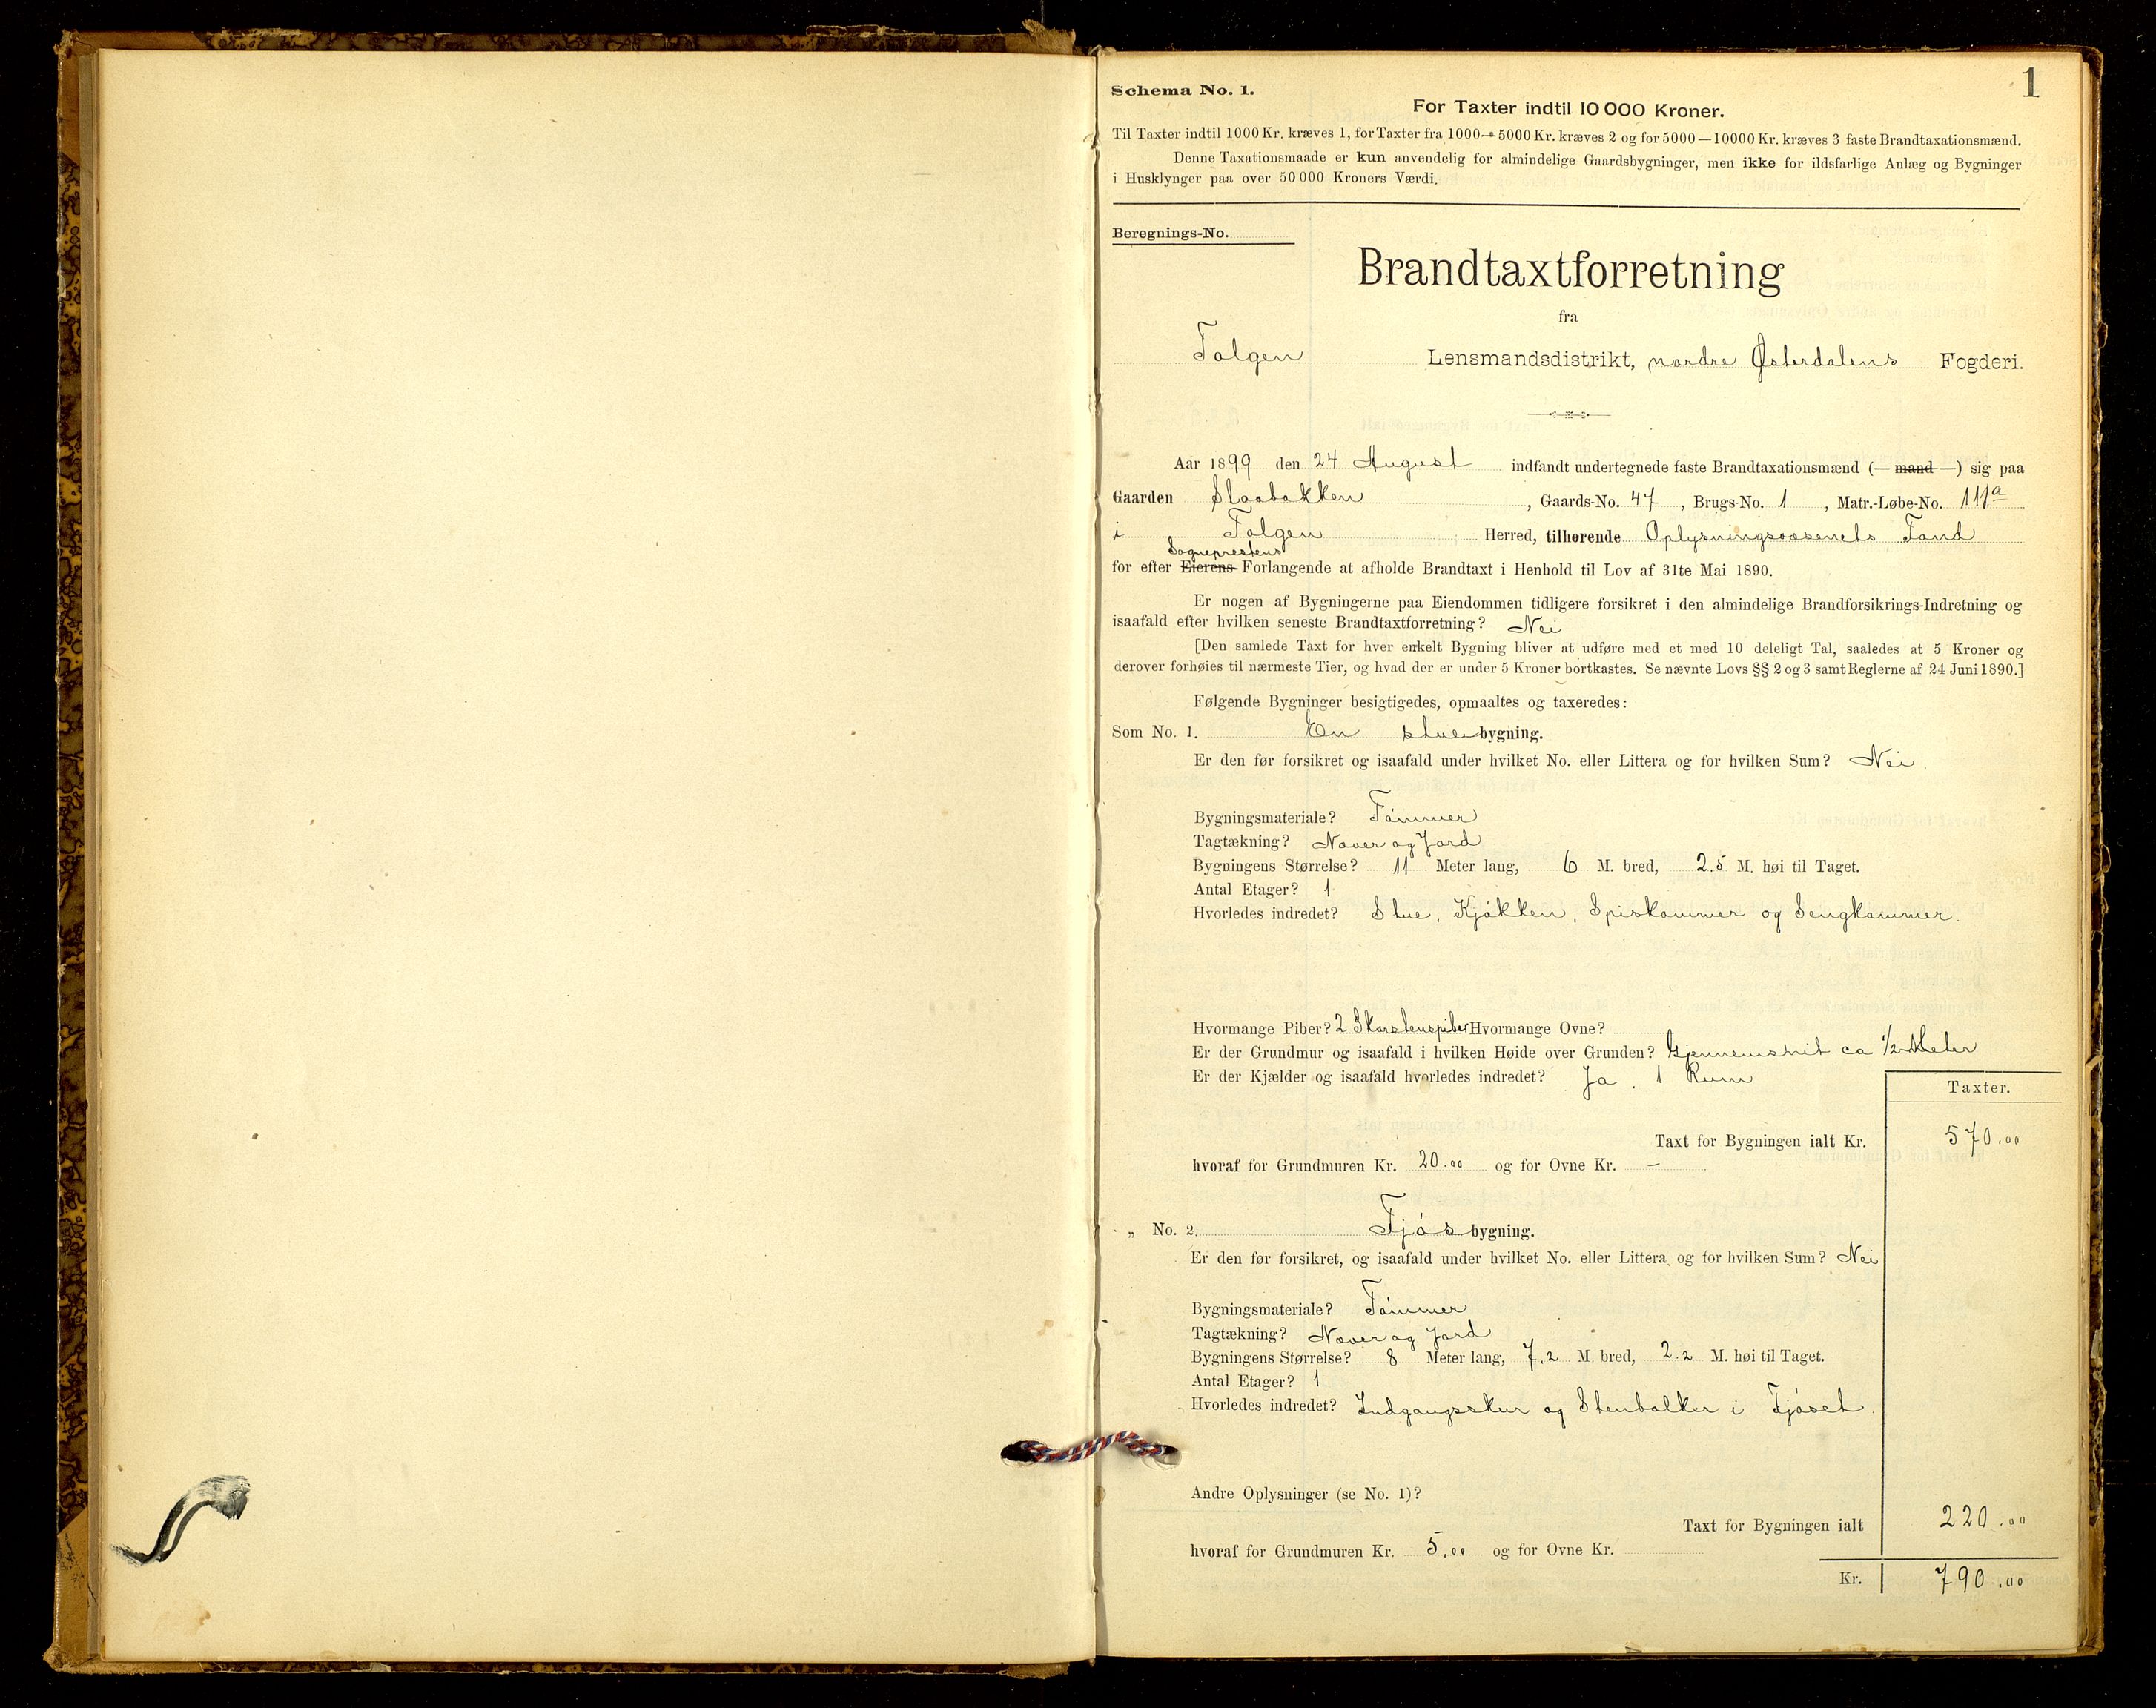 1
Schema No. 1.
For Taxter indtil 10 000 Kroner.
Til Taxter indtil 1000 Kr. kræves 1, for Taxter fra 1000—5000 Kr. kræves 2 og for 5000—10000 Kr. kræves 3 faste Brandtaxationsmænd.
Denne Taxationsmaade er kun anvendelig for almindelige Gaardsbygninger, men ikke for ildsfarlige Anlæg og Bygninger
i Husklynger paa over 50 000 Kroners Værdi.
Beregnings-No.
Brandtaxtforretning
fra
Tolgen Lensmandsdistrikt, nordre Østerdalens Fogderi.
Aar 1899 den 24 August indfandt undertegnede faste Brandtaxationsmænd (— mand —) sig paa
Gaarden Slaabakken, Gaards-No. 47, Brugs-No. 1, Matr.-Løbe-No. 111a
i Tolgen Herred, tilhørende Oplysningsvæsenets Fond
Sogneprestens
for efter Eierens Forlangende at afholde Brandtaxt i Henhold til Lov af 31te Mai 1890.
Er nogen af Bygningerne paa Eiendommen tidligere forsikret i den almindelige Brandforsikrings-Indretning og
isaafald efter hvilken seneste Brandtaxtforretning? Nei
[Den samlede Taxt for hver enkelt Bygning bliver at udføre med et med 10 deleligt Tal, saaledes at 5 Kroner og
derover forhøies til nærmeste Tier, og hvad der er under 5 Kroner bortkastes. Se nævnte Lovs §§ 2 og 3 samt Reglerne af 24 Juni 1890.]
Følgende Bygninger besigtigedes, opmaaltes og taxeredes:
Som No. 1. En stuebygning.
Er den før forsikret og isaafald under hvilket No. eller Littera og for hvilken Sum? Nei.
Bygningsmateriale? Tømmer
Tagtækning? Næver og Jord
Bygningens Størrelse? 11 Meter lang, 6 M. bred, 2.5 M. høi til Taget.
Antal Etager? 1
Hvorledes indredet? Stue, Kjøkken, Spiskammer og Sengkammer.
Hvormange Piber? 2 Skorstenspiber Hvormange Ovne?
Er der Grundmur og isaafald i hvilken Høide over Grunden? Gjennemsnit ca 1/2 Meter
Er der Kjælder og isaafald hvorledes indredet? Ja. 1 Rum
Taxter.
Taxt for Bygningen ialt Kr. 570.00
hvoraf for Grundmuren Kr. 20.00 og for Ovne Kr. —
„ No. 2. Fjøsbygning.
Er den før forsikret, og isaafald under hvilket No. eller Littera og for hvilken Sum? Nei
Bygningsmateriale? Tømmer
Tagtækning? Næver og Jord
Bygningens Størrelse? 8 Meter lang, 7.2 M. bred, 2.2 M. høi til Taget.
Antal Etager? 1
Hvorledes indredet? Indgangsskur og Stenbolker i Fjøset.
Andre Oplysninger (se No. 1)?
Taxt for Bygningen ialt 220.00
hvoraf for Grundmuren Kr. 5.00 og for Ovne Kr.
Kr. 790.00